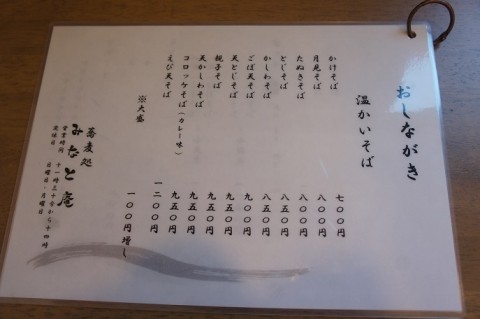 おしながき
温かいそば
かけそば 七〇〇円
月見そば 八〇〇円
たぬきそば 八〇〇円
とじそば 八五〇円
かしわそば 八五〇円
ごぼ天そば 九〇〇円
天とじそば 九五〇円
親子そば 九〇〇円
天かしわそば 九五〇円
コロッケそば(カレー味) 九五〇円
えび天そば 一二〇〇円
※大盛 一〇〇円増し
蕎麦処
みなと庵
営業時間 十一時三十分から十四時
定休日 日曜日・月曜日